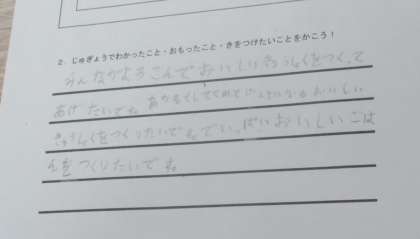 2. じゅぎょうでわかったこと・おもったこと・きをつけたいことをかこう！
みんながよろこんでおいしい きゅうしょくをつくって
あげたいです。あかるくして
きゅうしょくをつくりたいです。でいっぱいおいしいごは
んをつくりたいです。